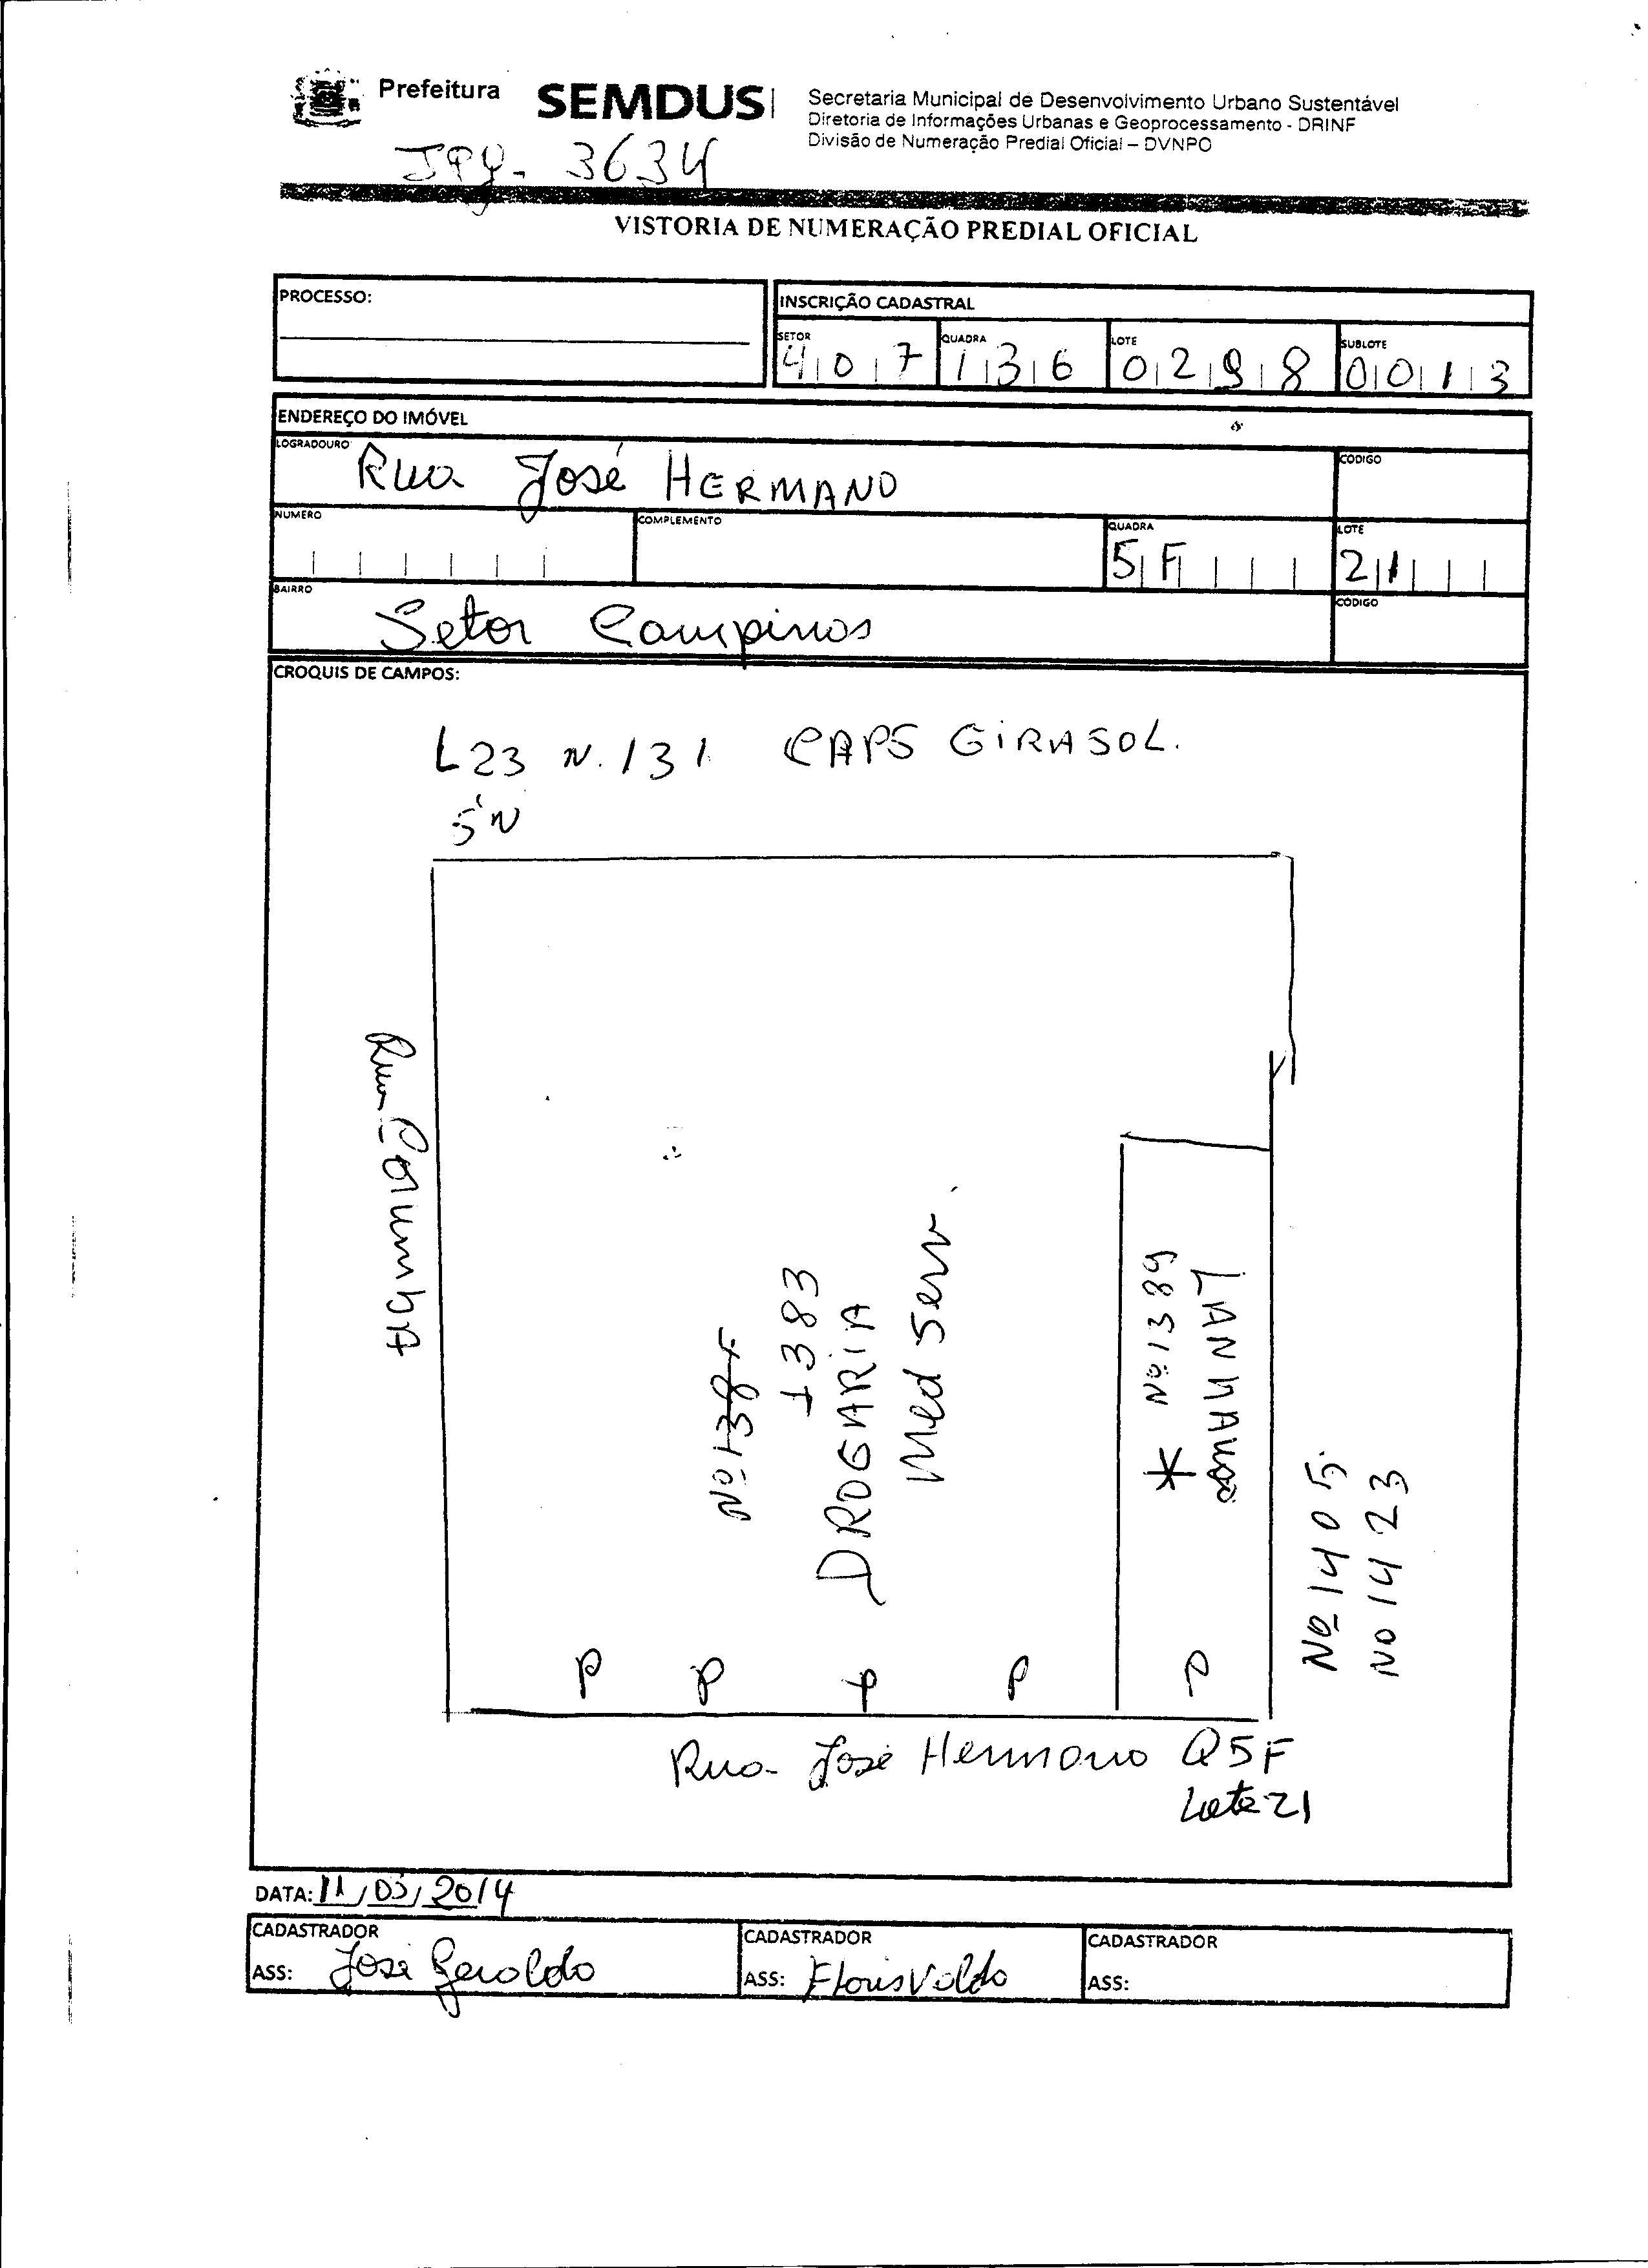 Prefeitura SEMDUS
Secretaria Municipal de Desenvolvimento Urbano Sustentável
Diretoria de Informações Urbanas e Geoprocessamento - DRINF
Divisão de Numeração Predial Oficial – DVNPO
3634
VISTORIA DE NUMERAÇÃO PREDIAL OFICIAL
PROCESSO:
INSCRIÇÃO CADASTRAL
SETOR QUADRA LOTE SUBLOTE
407 136 0298 0013
ENDEREÇO DO IMÓVEL
LOGRADOURO Rua José HERMANO CÓDIGO
NUMERO COMPLEMENTO QUADRA LOTE
5F 21
BAIRRO Setor Campinas CÓDIGO
CROQUIS DE CAMPOS:
L23 N. 131 CAPS GIRASOL.
5N
Rua Corumbá
1383
DROGARIA
Med Serv
* Nº 1389
Nº 1405
Nº 1423
P P P P P
Rua José Hermano Q5F
Lote 21
DATA: 11/03/2014
CADASTRADOR CADASTRADOR CADASTRADOR
ASS: José Geraldo ASS: Florisvaldo ASS: